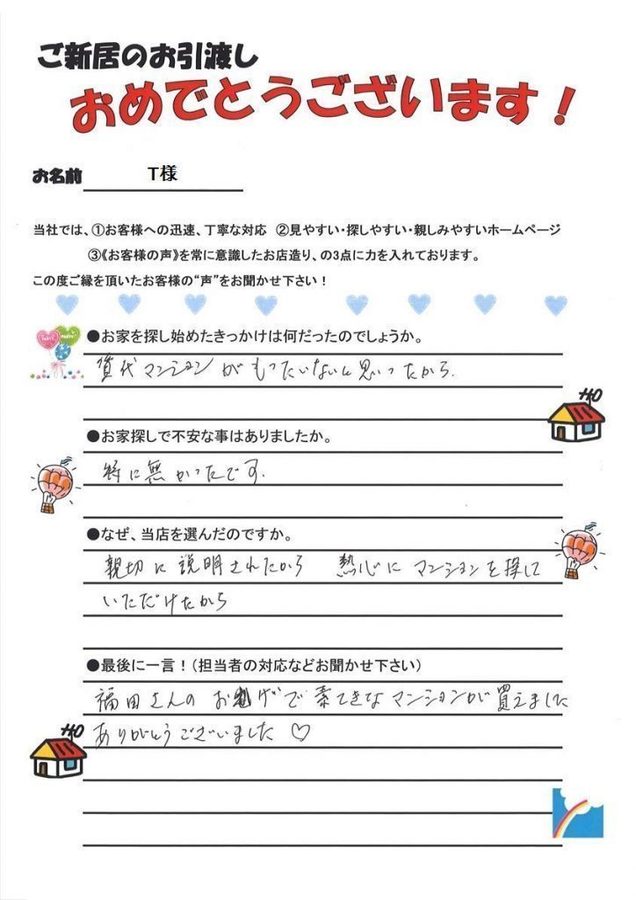 ご新居のお引渡し
おめでとうございます！
お名前 T様
当社では、①お客様への迅速、丁寧な対応 ②見やすい・探しやすい・親しみやすいホームページ
③《お客様の声》を常に意識したお店造り、の3点に力を入れております。
この度ご縁を頂いたお客様の“声”をお聞かせ下さい！
●お家を探し始めたきっかけは何だったのでしょうか。
賃代マンションがもったいないと思ったから.
●お家探しで不安な事はありましたか。
特に無かったです.
●なぜ、当店を選んだのですか。
親切に説明されたから 熱心にマンションを探して
いただけたから
●最後に一言！（担当者の対応などお聞かせ下さい）
福田さんのおげで素てきなマンションが買えました
ありがとうございました♡